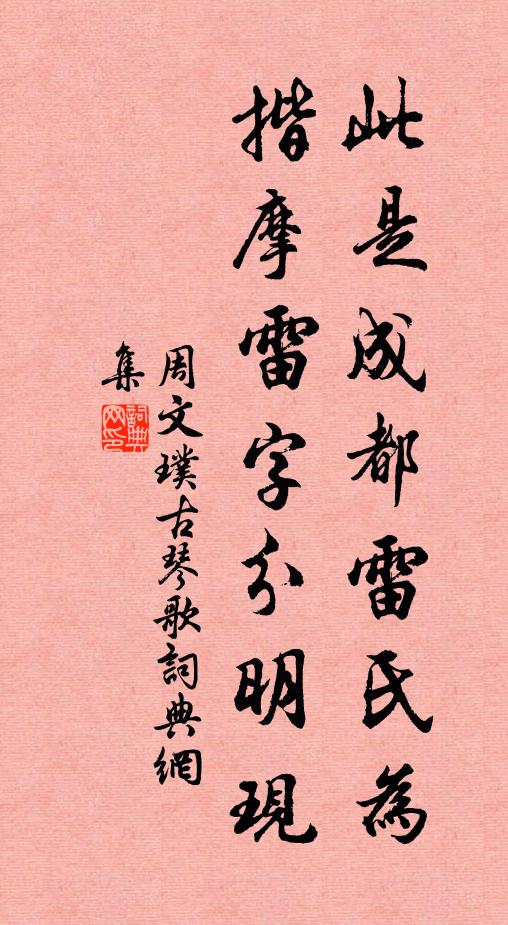 此是成都雷氏為
揩摩雷字分明現
周文璞古琴歌詞典網
集
詞典網印